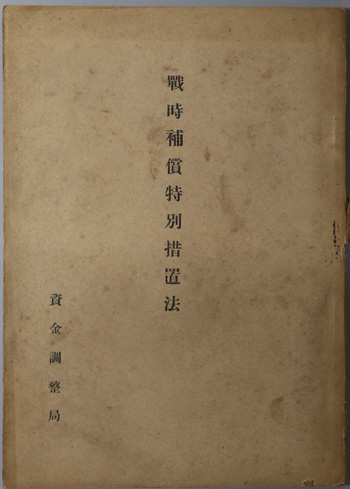 戰時補償特別措置法
資金調整局